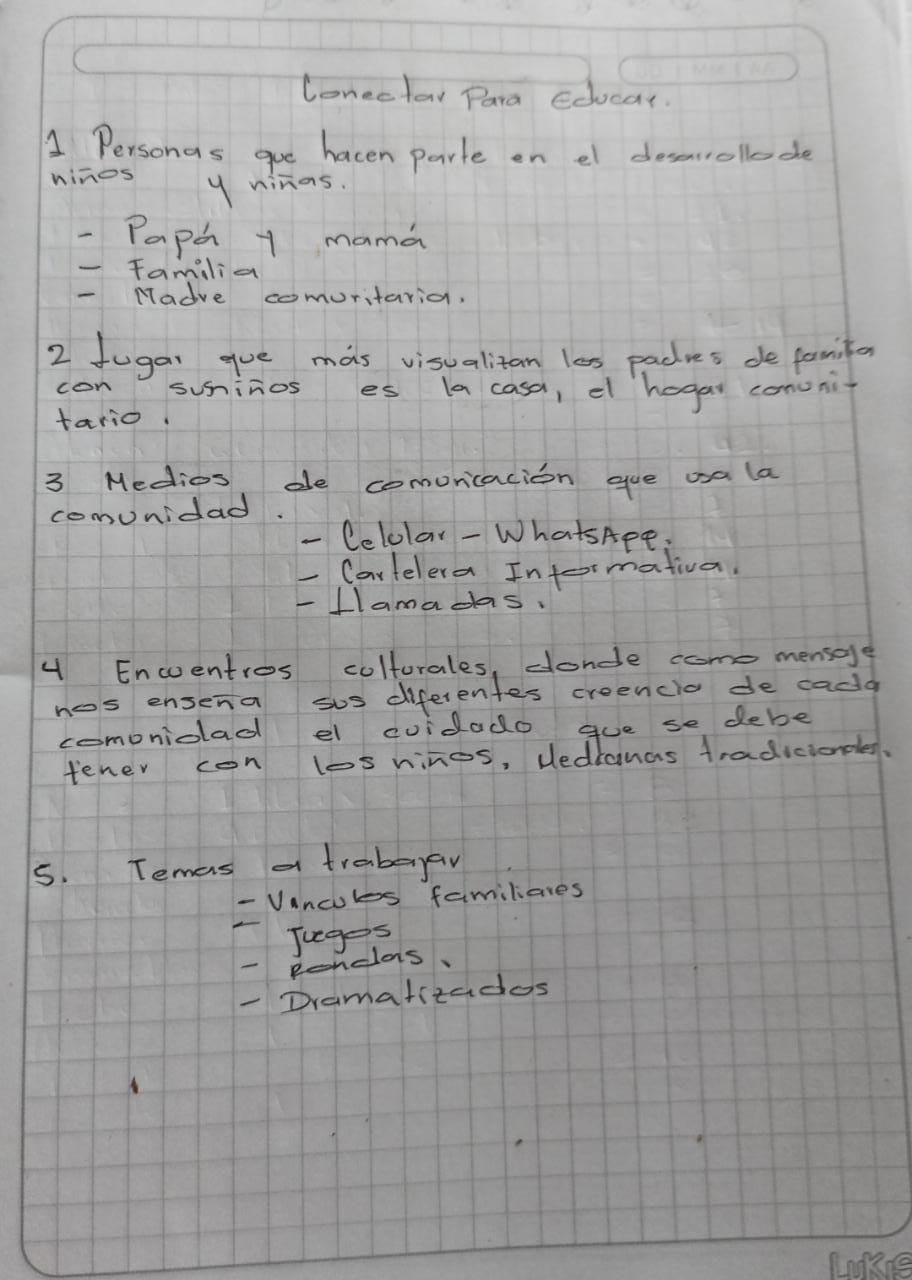 Conectar Para Educar.
1 Personas que hacen parte en el desarrollo de
niños y niñas.
- Papá y mamá
- Familia
- Madre comunitaria.
2 Lugar que más visualizan los padres de familia
con sus niños es la casa, el hogar comuni-
tario.
3 Medios de comunicación que usa la
comunidad.
- Celular - WhatsApp.
- Cartelera Informativa.
- Llamadas.
4 Encuentros culturales, donde como mensaje
nos enseña sus diferentes creencia de cada
comunidad el cuidado que se debe
tener con los niños, Medicinas tradicionales.
5. Temas a trabajar
- Vinculos familiares
- Juegos
- Rondas.
- Dramatizados